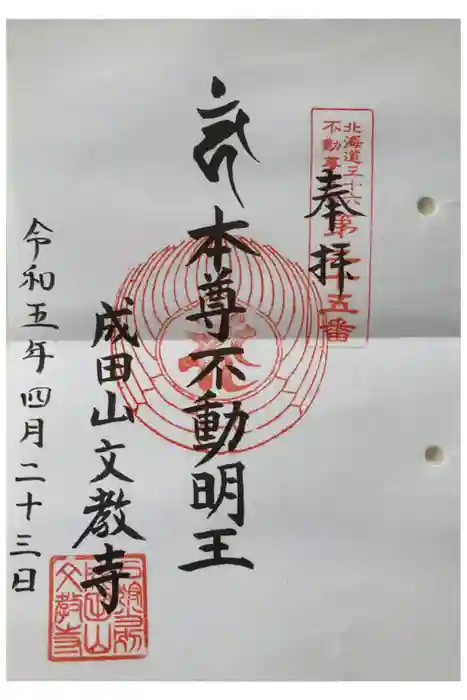 奉拝
北海道三十六
不動尊
第三十五番
本尊不動明王
成田山文教寺
令和五年四月二十三日